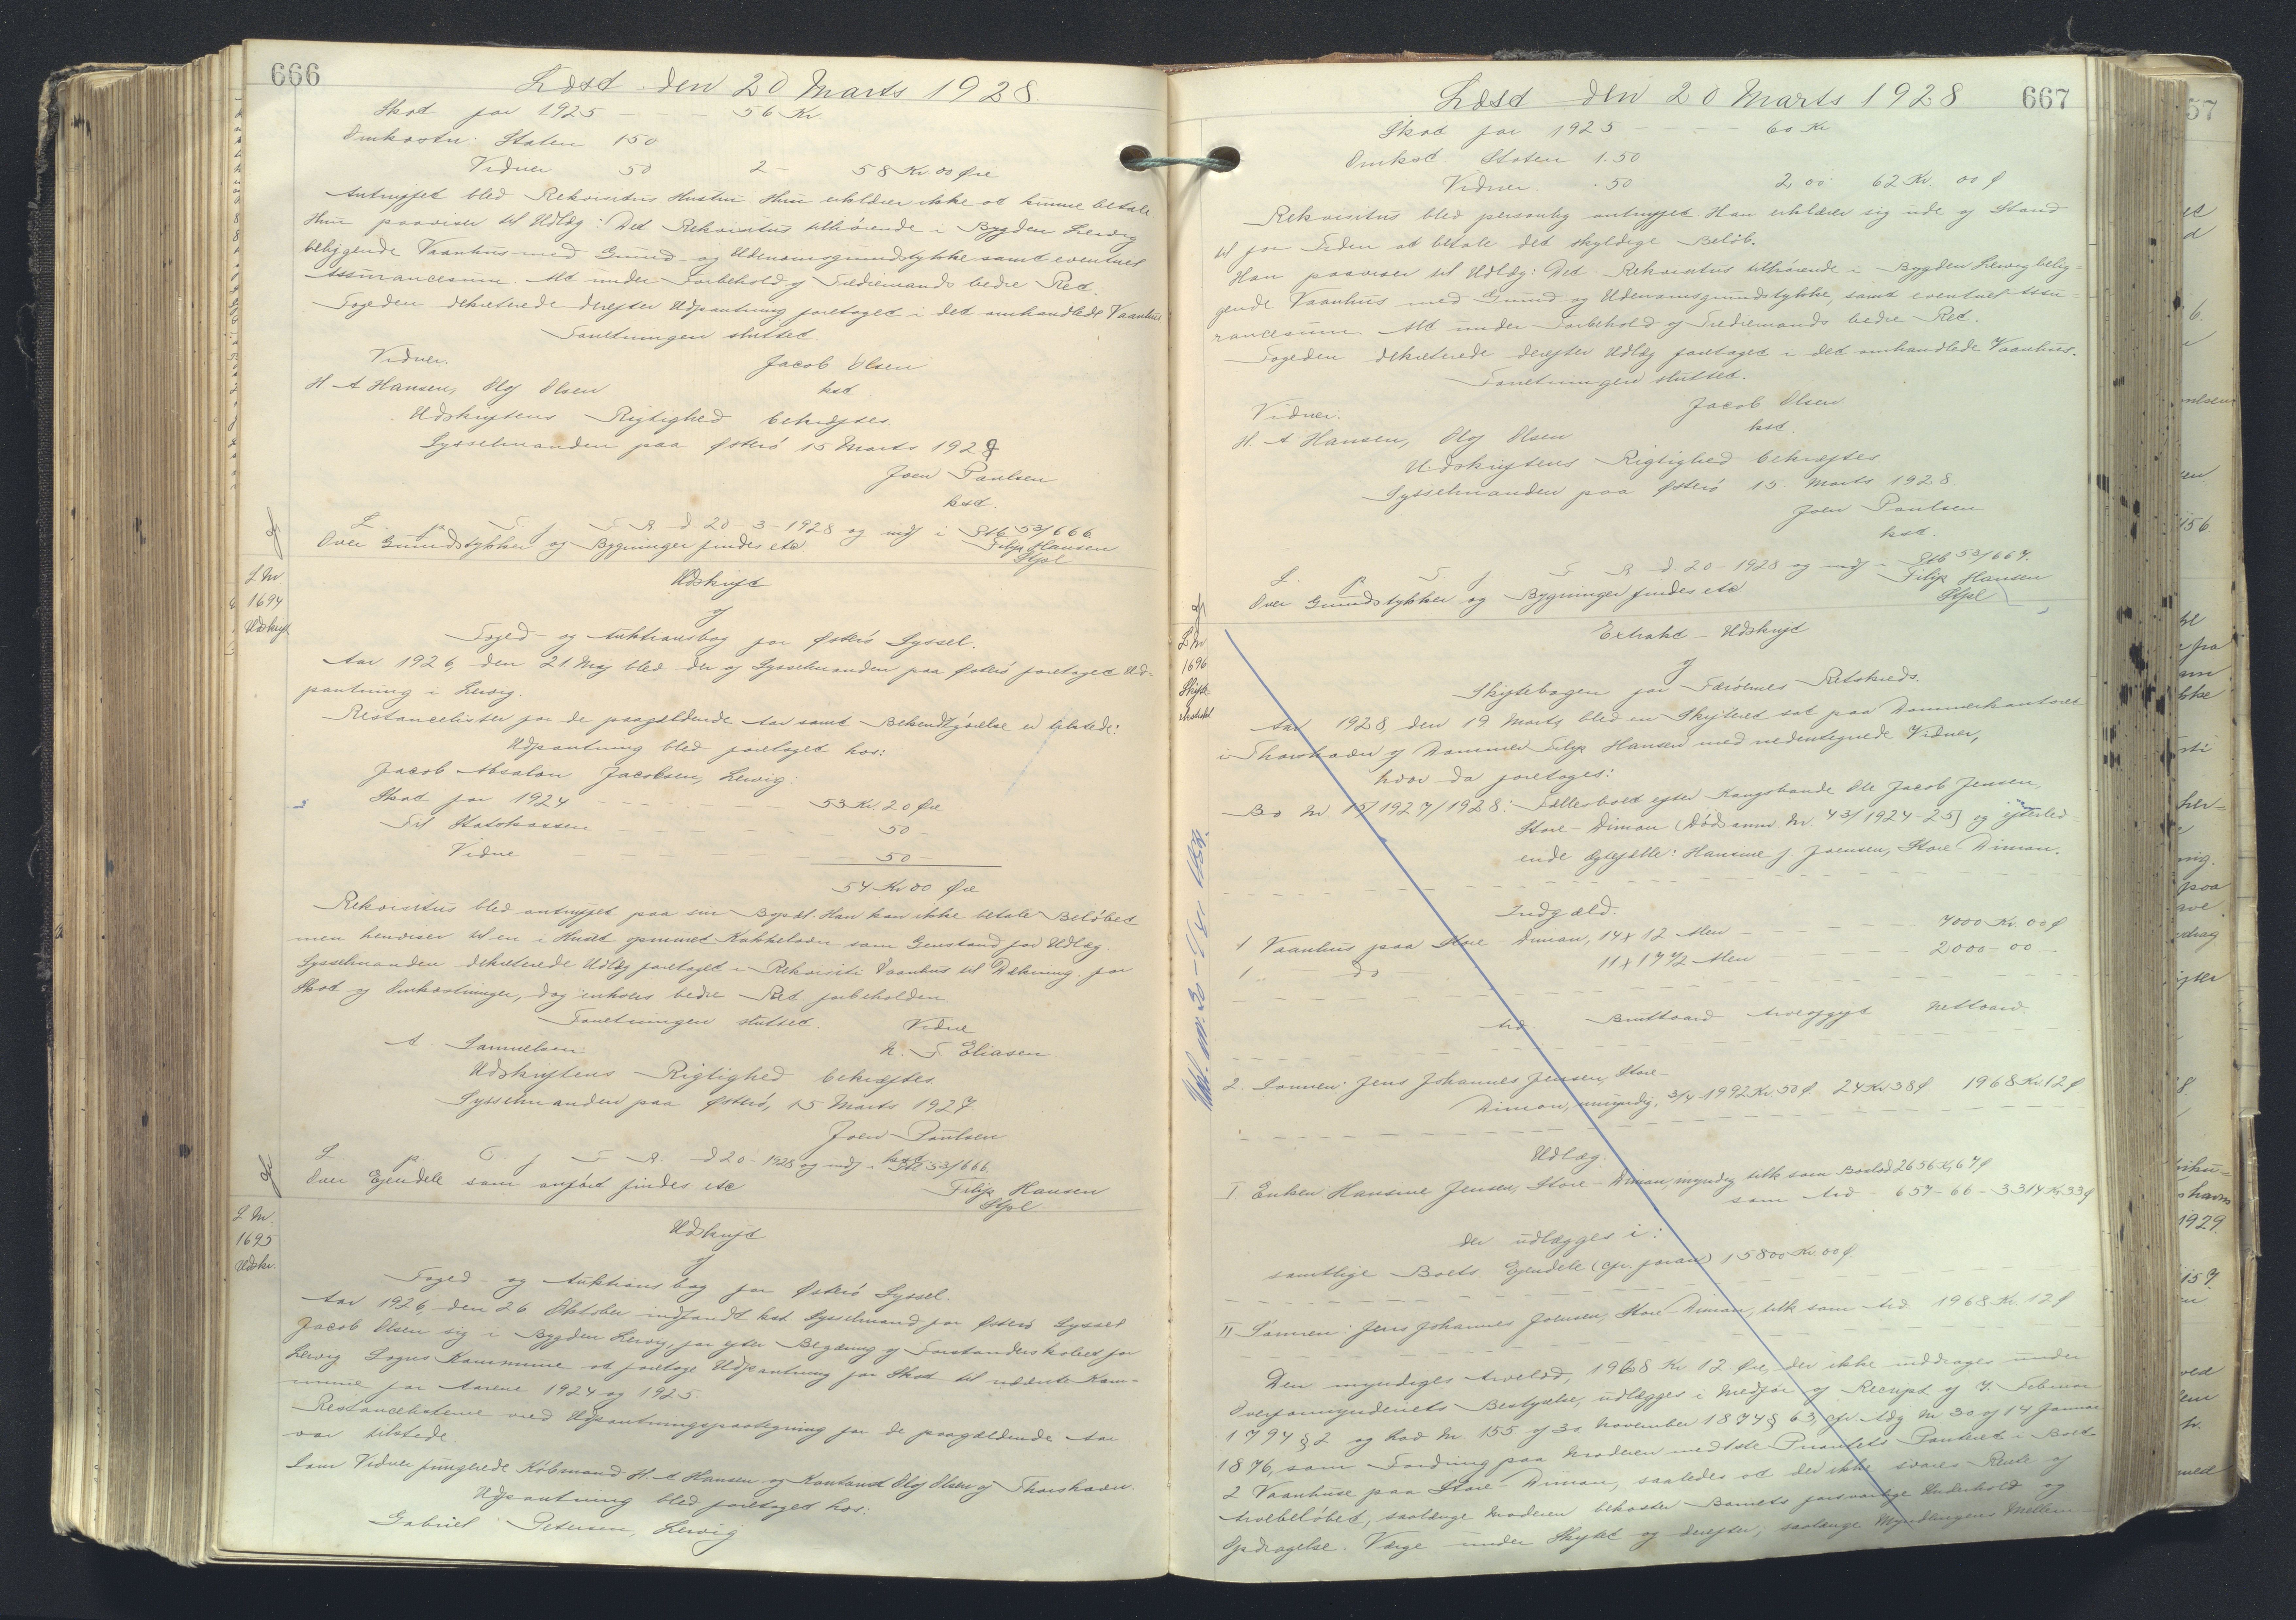 666
Læst den 20 Marts 1928.
Skat for 1925 - - - 56 Kr
Omkostn: Staten 150
Vidner 50 2 - 58 Kr. 00 Øre
Antruffet blev Rekvisitus Hustru. Hun erklærer ikke at kunne betale
Hun paaviser til Udlæg: Det Rekvisitus tilhørende i Bygden Lervig
beliggende Vaanhus med Grund og Udenomsgrundstykke samt eventuel
Assurancesum. Alt under Forbehold af Trediemands bedre Ret.
Fogeden dekreterede derefter Udpantning foretaget i det omhandlede Vaanhus
Forretningen sluttet.
Vidner. Jacob Olsen
H A Hansen, Oly Olsen kst
Udskriftens Rigtighed bekræftes.
Sysselmanden paa Østerø 15 Marts 1928
Joen Poulsen
kst.
L. p. T. f. F. R. d. 20-3-1928 og indf i Stb 53/666.
Over Grundstykker og Bygninger findes etc Filip Hansen
Stpl
L Nr 1694 Udskrift
Udskrift
af
Foged- og Auktionsbog for Østerø Syssel.
Aar 1926, den 21. Maj blev der af Sysselmanden paa Østerø foretaget Ud-
pantning i Lervig.
Restancelister for de paagældende Aar samt Bekendtgørelse er tilstede:
Udpantning blev foretaget hos:
Jacob Absalon Jacobsen, Lervig:
Skat for 1924 - - - - 53 Kr. 20 Øre
Til Statskassen - - - - 50 -
Vidne - - - - 50 -
54 Kr 00 Øre
Rekvisitus blev antruffet paa sin Bopæl. Han kan ikke betale Beløbet
men henviser til en i Huset opmuret Kakkelovn som Genstand for Udlæg.
Sysselmanden dekreterede Udlæg foretaget i Rekvisiti Vaanhus til Dækning for
Skat og Omkostninger, dog enhvers bedre Ret forbeholden.
Forretningen sluttet. Vidne
A Samuelsen N. F. Eliasen
Udskriftens Rigtighed bekræftes.
Sysselmanden paa Østerø, 15 Marts 1927.
Joen Poulsen
kst
L. p. T. f. F. R. d 20- 1928 og indf i Stb 53/666.
Over Ejendele som anført findes etc Filip Hansen
Stpl
L Nr 1695 Udskr.
Udskrift
af
Foged- og Auktionsbog for Østerø Syssel.
Aar 1926, den 26 Oktober indfandt kst Sysselmand for Østerø Syssel
Jacob Olsen sig i Bygden Lervig, for efter Begæring af Forstanderskabet for
Lervig Sogns Kommune at foretage Udpantning for Skat til nævnte Kom-
mune for Aarene 1924 og 1925.
Restancelisterne med Udpantningspaategning for de paagældende Aar
var tilstede.
Som Vidner fungerede Købmand H. A Hansen og Kontorist Oly Olsen af Thorshavn.
Udpantning blev foretaget hos:
Gabriel Petersen, Lervig
Læst den 20 Marts 1928 667
Skat for 1925 - - - - 60 Kr
Omkst Staten 1.50
Vidner. .50 2,00 62 Kr. 00 Ø
Rekvisitus blev personlig antruffet. Han erklærer sig ude af Stand
til for Tiden at betale det skyldige Beløb.
Han paaviser til Udlæg: Det Rekvisitus tilhørende i Bygden Lervig belig-
gende Vaanhus med Grund og Udenomsgrundstykke, samt eventuel Assu-
rancesum. Alt under Forbehold af Trediemands bedre Ret.
Fogeden dekreterede derefter Udlæg foretaget i det omhandlede Vaanhus.
Forretningen sluttet.
Vidner. Jacob Olsen
H. A Hansen, Oly Olsen kst.
Udskriftens Rigtighed bekræftes
Sysselmanden paa Østerø 15. Marts 1928
Joen Poulsen
kst.
L. p T f F R d 20-1928 og indf i Stb 53/667.
Over Grundstykker og Bygninger findes etc Filip Hansen
Stpl
L Nr 1696 Skifte
Extrakt-Udskrift
af
Skiftebogen for Færøernes Retskreds.
Aar 1928, den 19 Marts, blev en Skifteret sat paa Dommerkontoret
i Thorshavn af Dommer Filip Hansen med nedentegnede Vidner,
hvor da foretoges:
Bo Nr 15/1927/1928: Fællesboet efter Kongsbonde Ole Jacob Jensen,
Store-Dimon (Dødsanm. Nr. 43/1924-25) og efterlev-
ende Ægtefælle: Hansine J Joensen, Store-Dimon.
Indgæld.
1 Vaanhus paa Store Dimon, 14 x 12 Alen - - - - 7000 Kr. 00 Ø
1 .. Do 11 x 17½ Alen - - 2000 - 00
Arv Bruttoarv Arveafgift Nettoarv.
2. Sønnen: Jens Johannes Jensen, Store-
Dimon, umyndig, 3/4 - 1992 Kr. 50 Ø 24 Kr 38 Ø 1968 Kr. 12 Ø
Udlæg.
I Enken Hansine Jensen, Store-Dimon, myndig tilk som Boslod 2656 Kr, 67 Ø
som Arv - 657 - 66 - 3314 Kr, 33 Ø
der udlægges i:
samtlige Boets Ejendele (cfr. foran) 15800 Kr. 00 Ø.
II Sønnen: Jens Johannes Joensen, Store-Dimon, tilk som Arv 1968 Kr. 12 Ø
Den myndiges Arvelod, 1968 Kr. 12 Øre, der ikke inddrages under
Overformynderiets Bestyrelse, udlægges i Medfør af Rescript af 7. Februar
1794 § 2 og Lov Nr. 155 af 30 November 1874 § 63, cfr. Adg Nr 30 af 14 Januar
1876, som Fordring paa Moderen med 1ste Prioritets Panteret i Boets
2 Vaanhuse paa Store-Dimon, saaledes at der ikke svares Rente af
Arvebeløbet, saalænge Moderen bekoster Barnets forsvarlige Underhold og
Opdragelse. Værge under Skiftet og derefter, saalænge Myndlingens Midler